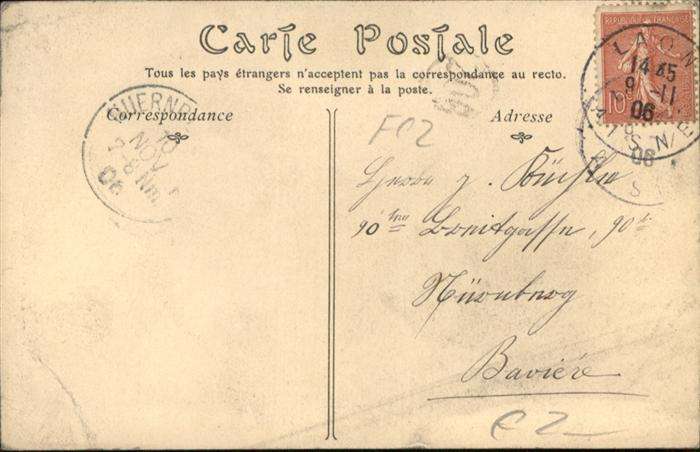 Carte Postale
Tous les pays étrangers n'acceptent pas la correspondance au recto.
Se renseigner à la poste.
Correspondance
Adresse
REPUBLIQUE FRANÇAISE
10
LAON
14 45
9 -11
06
AISNE
NUERNB
10
NOV
7-8 Nm.
06
FC2
Herrn J.
90 90
Nürnberg
Bavière